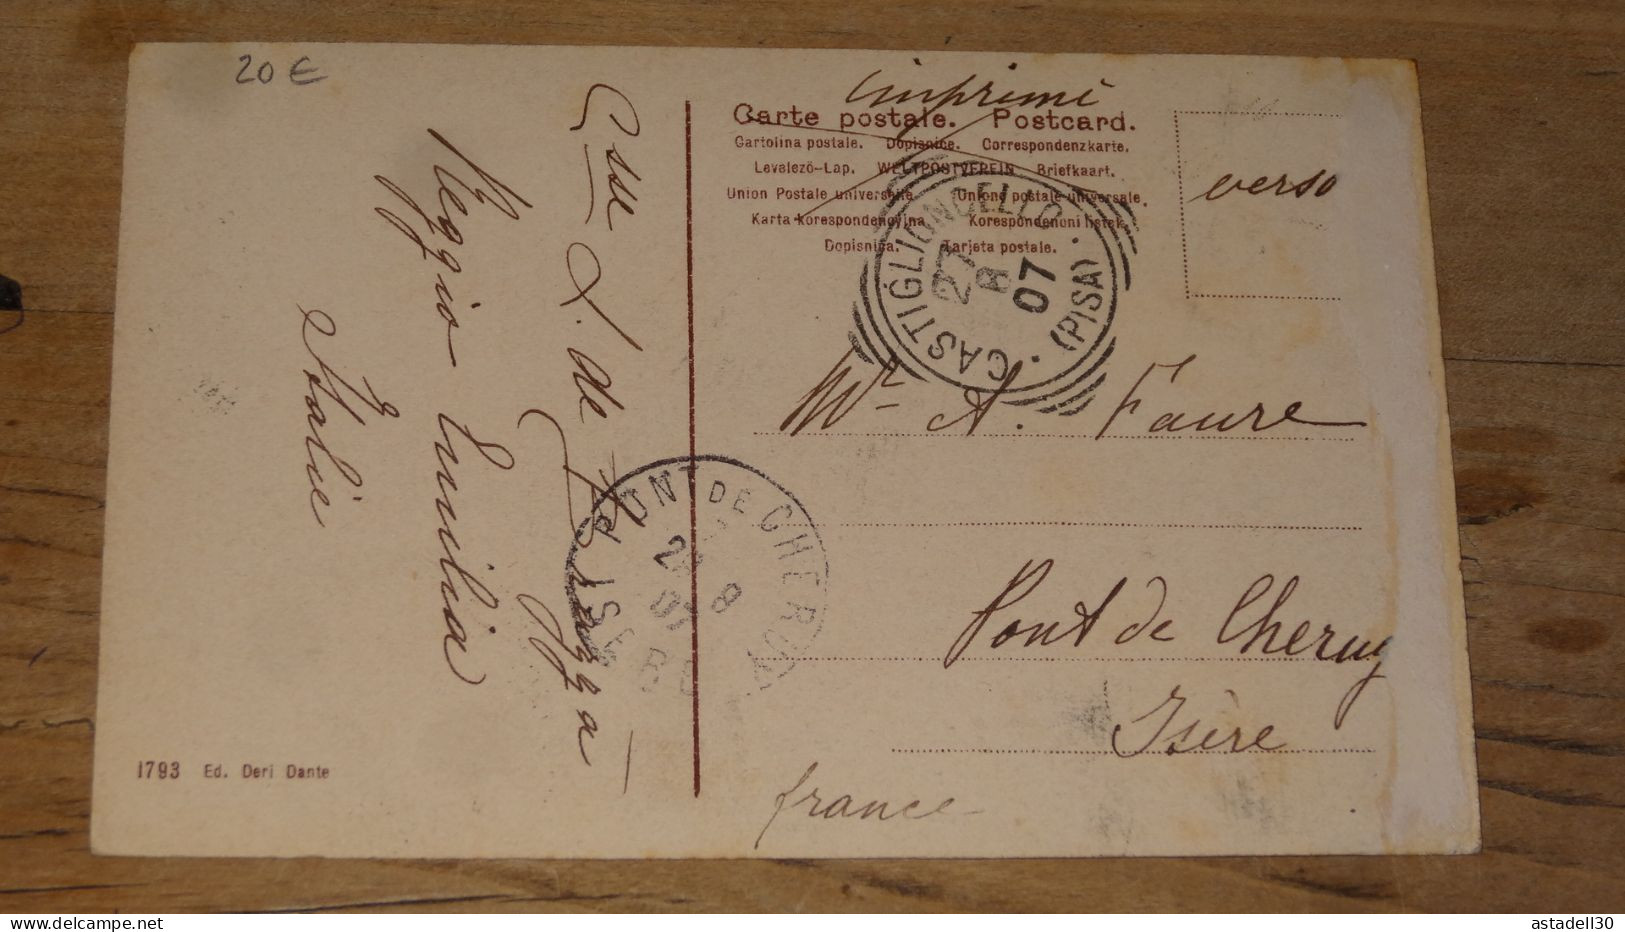 20 €
imprimé
Carte postale. Postcard.
Cartolina postale. Dopisnice. Correspondenzkarte.
Levelező-Lap. WELTPOSTVEREIN Briefkaart.
Union Postale universelle. Unione postale universale.
Karta korespondencyjna Korespondencni listek.
Dopisnica. Tarjeta postale.
verso
CASTIGLIONCELLO
(PISA)
27
8
07
Mr A. Faure
Pont de Cheruy
Isère
france
Csse L. de Brazza
Reggio Emilia
Italie
PONT DE CHERUY
ISERE
8
07
1793 Ed. Deri Dante
astadell30